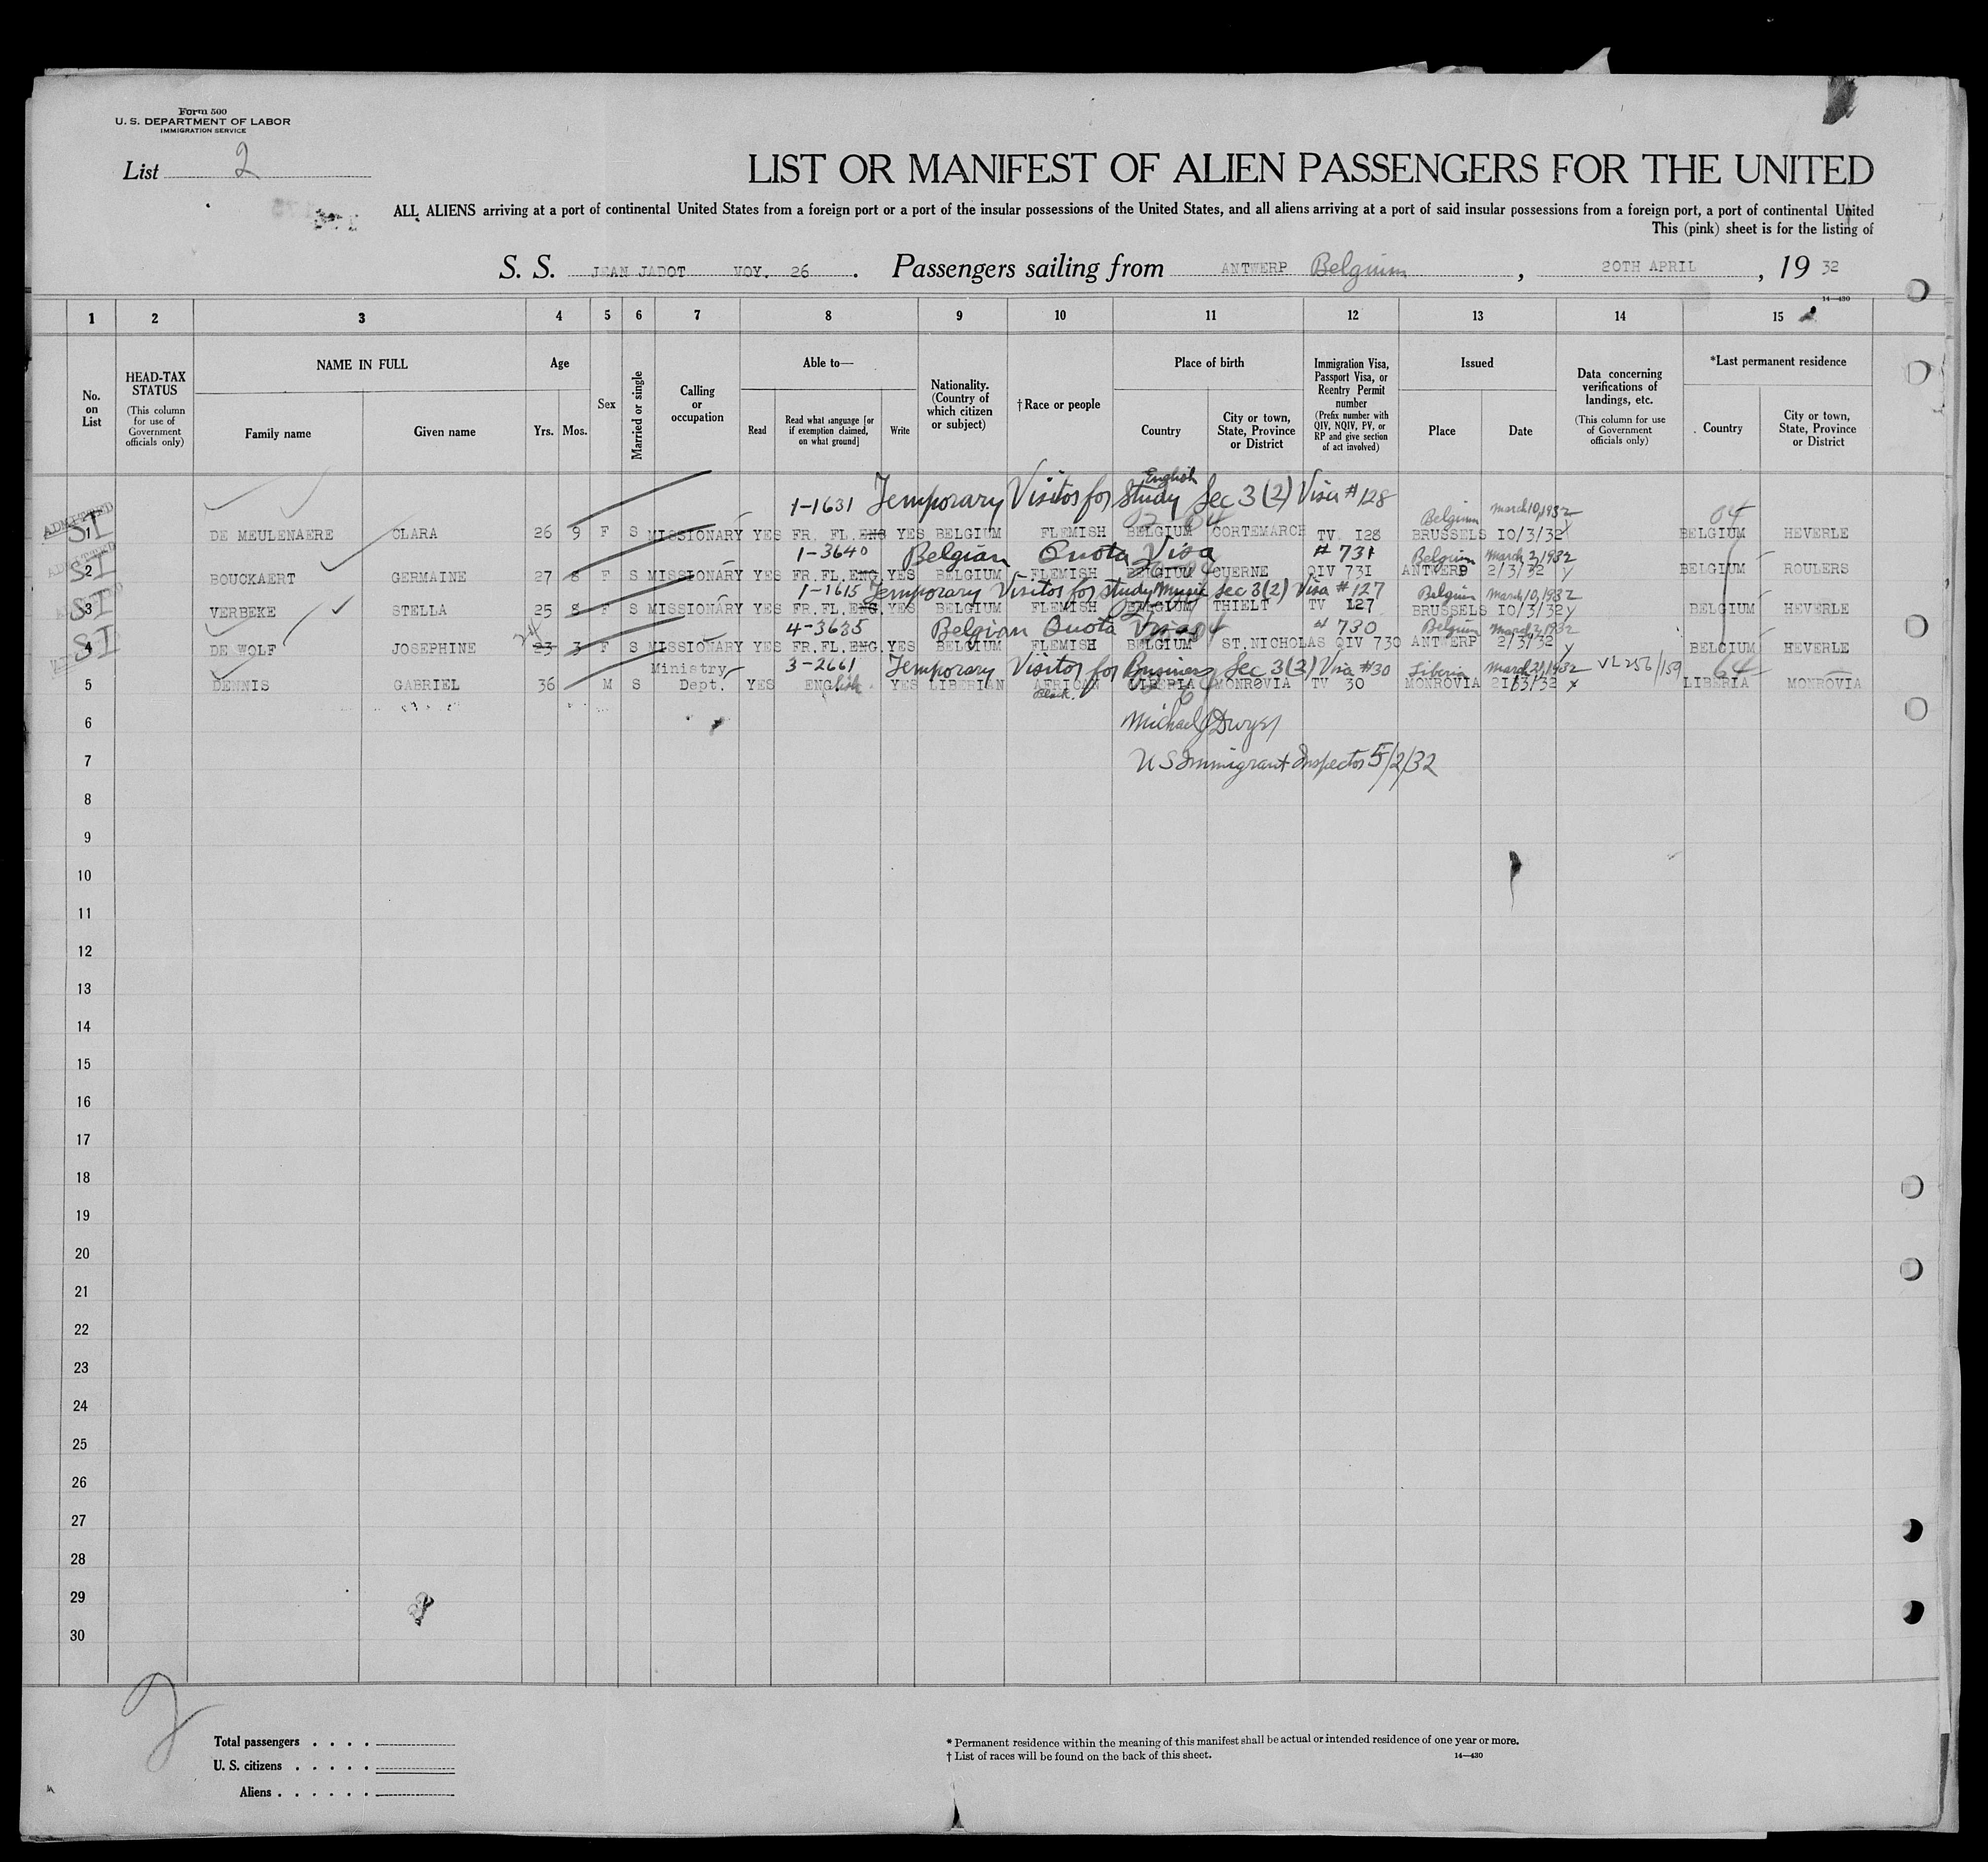 Form 500
U. S. DEPARTMENT OF LABOR
IMMIGRATION SERVICE
List 2
LIST OR MANIFEST OF ALIEN PASSENGERS FOR THE UNITED
ALL ALIENS arriving at a port of continental United States from a foreign port or a port of the insular possessions of the United States, and all aliens arriving at a port of said insular possessions from a foreign port, a port of continental United
This (pink) sheet is for the listing of
S. S. JEAN JADOT VOY. 26 . Passengers sailing from ANTWERP Belgium , 20TH APRIL , 19 32
14—430
1 2 3 4 5 6 7 8 9 10 11 12 13 14 15
No. on List
HEAD-TAX STATUS (This column for use of Government officials only)
NAME IN FULL Family name Given name
Age Yrs. Mos.
Sex
Married or single
Calling or occupation
Able to— Read Read what language [or if exemption claimed, on what ground] Write
Nationality. (Country of which citizen or subject)
† Race or people
Place of birth Country City or town, State, Province or District
Immigration Visa, Passport Visa, or Reentry Permit number (Prefix number with QIV, NQIV, PV, or RP and give section of act involved)
Issued Place Date
Data concerning verifications of landings, etc. (This column for use of Government officials only)
*Last permanent residence Country City or town, State, Province or District
1-1631 Temporary Visitor for English Study Sec 3(2) Visa # 128 Belgium March 10, 1932 04
ADMITTED SI 1 DE MEULENAERE CLARA 26 9 F S MISSIONARY YES FR. FL. ENG YES BELGIUM FLEMISH BELGIUM CORTEMARCH TV. 128 BRUSSELS 10/3/32 BELGIUM HEVERLE
1-3640 Belgian Quota Visa # 731 Belgium March 2, 1932
SI 2 BOUCKAERT GERMAINE 27 8 F S MISSIONARY YES FR.FL.ENG. YES BELGIUM FLEMISH BELGIUM CUERNE QIV 731 ANTWERP 2/3/32 BELGIUM ROULERS
1-1615 Temporary Visitor for Study Music Sec 3(2) Visa # 127 Belgium March 10, 1932
SI 3 VERBEKE STELLA 25 8 F S MISSIONARY YES FR.FL.ENG YES BELGIUM FLEMISH BELGIUM THIELT TV 127 BRUSSELS 10/3/32 BELGIUM HEVERLE
4-3685 Belgian Quota Visa # 730 Belgium March 2, 1932
SI 4 DE WOLF JOSEPHINE 24 23 3 F S MISSIONARY YES FR.FL.ENG. YES BELGIUM FLEMISH BELGIUM ST.NICHOLAS QIV 730 ANTWERP 2/3/32 BELGIUM HEVERLE
3-2661 Temporary Visitor for Business Sec 3(2) Visa #30 Liberia March 21, 1932 VL 256/159 64
5 DENNIS GABRIEL 36 M S Ministry Dept. YES ENGlish YES LIBERIAN AFRICAN Black. LIBERIA MONROVIA TV 30 MONROVIA 21/3/32 LIBERIA MONROVIA
6 Michael J Dwyer
7 US Immigrant Inspector 5/2/32
8
9
10
11
12
13
14
15
16
17
18
19
20
21
22
23
24
25
26
27
28
29
30
2
Total passengers . . . .
U. S. citizens . . . . .
Aliens . . . . . .
* Permanent residence within the meaning of this manifest shall be actual or intended residence of one year or more.
† List of races will be found on the back of this sheet.
14—430